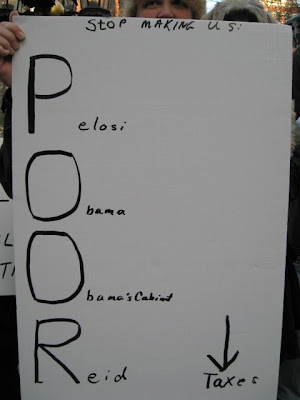 STOP MAKING US:
Pelosi
Obama
Obama's Cabinet
Reid
↓
Taxes